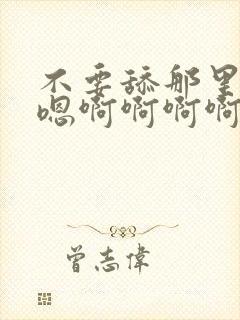 不要舔那里
嗯啊啊啊啊
曾志偉